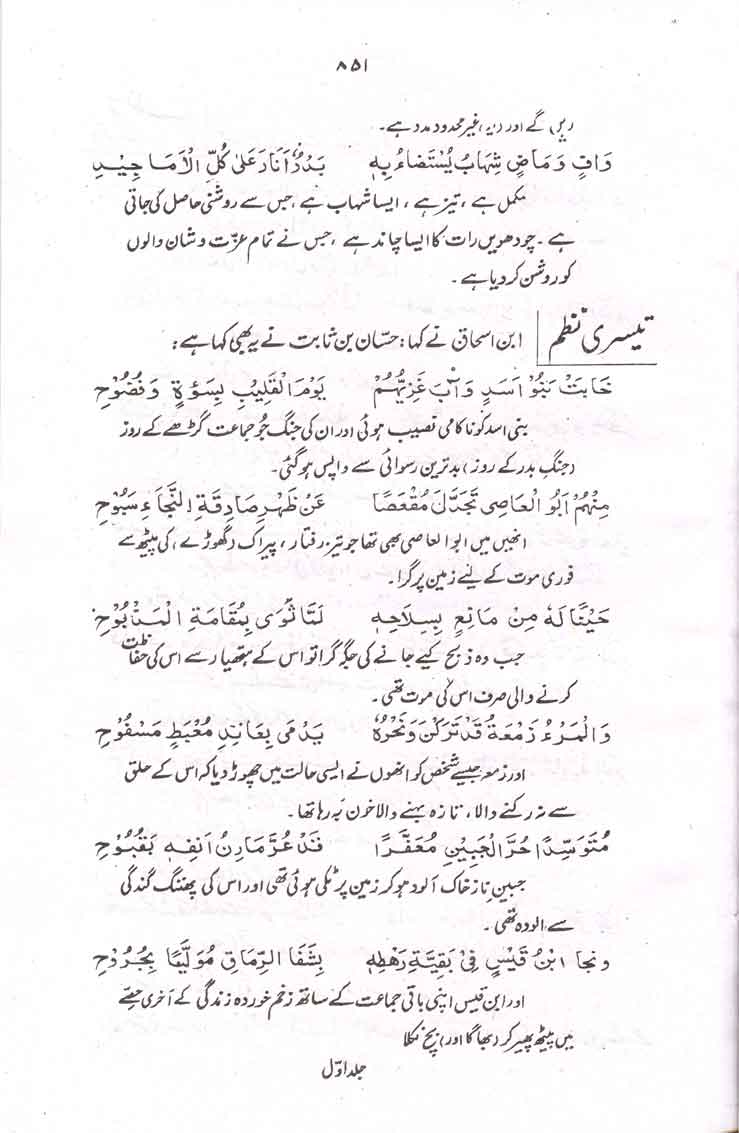 ۸۵۱
ریں گے اور (یہ) غیر محدود مدد ہے۔
وَافٍ وَمَاضٍ شِهَابٌ يُسْتَضَاءُ بِهٖ بَدْرٌ أَنَارَ عَلٰى كُلِّ الْاَمَاجِيْدِ
مکمل ہے، تیز ہے، ایسا شہاب ہے، جس سے روشنی حاصل کی جاتی
ہے۔ چودھویں رات کا ایسا چاند ہے، جس نے تمام عزّت و شان والوں
کو روشن کر دیا ہے۔
تیسری نظم
ابن اسحاق نے کہا: حسّان بن ثابت نے یہ بھی کہا ہے:
خَابَتْ بَنُوْ اَسَدٍ وَآبَ غَزِيُّهُمْ يَوْمَ الْقَلِيْبِ بِسَوْءَةٍ وَفُضُوْحِ
بنی اسد کو ناکامی نصیب ہوئی اور ان کی جنگ جُو جماعت گڑھے کے روز
(جنگِ بدر کے روز) بدترین رسوائی سے واپس ہو گئی۔
مِنْهُمْ اَبُو الْعَاصِى تَجَدَّلَ مُقْعَصًا عَنْ ظَهْرِ صَادِقَةِ النَّجَاءِ سَبُوْحِ
انھیں میں ابو العاصی بھی تھا جو تیز رفتار، پیراک (گھوڑے) کی پیٹھ سے
فوری موت کے لیے زمین پر گرا۔
حَيْنًا لَهٗ مِنْ مَانِعٍ بِسِلَاحِهٖ لَمَّا ثَوٰى بِمُقَامَةِ الْمَذْبُوْحِ
جب وہ ذبح کیے جانے کی جگہ گرا تو اس کے ہتھیار سے اس کی حفاظت
کرنے والی صرف اس کی موت تھی۔
وَالْمَرْءُ زَمْعَةُ قَدْ تَرَكْنَ وَنَحْرُهٗ يَدْمٰى بِعَانِدٍ مُعْبَطٍ مَسْفُوْحِ
اور زمعہ جیسے شخص کو انھوں نے ایسی حالت میں چھوڑ دیا کہ اس کے حلق
سے نہ رکنے والا، تازہ بہنے والا خون بہ رہا تھا۔
مُتَوَسِّدًا حُرَّ الْجَبِيْنِ مُعَفَّرًا قَدْ عُرَّ مَارِنُ اَنْفِهٖ بِقُبُوْحِ
جبینِ ناز خاک آلود ہو کر زمین پر ٹکی ہوئی تھی اور اس کی پھننگ گندگی
سے آلودہ تھی۔
وَنَجَا ابْنُ قَيْسٍ فِىْ بَقِيَّةِ رَهْطِهٖ بِشَفَا الرِّمَاقِ مُوَلِّيًا بِجُرُوْحِ
اور ابن قیس اپنی باقی جماعت کے ساتھ زخم خوردہ زندگی کے آخری حصّے
میں پیٹھ پھیر کر (بھاگا اور) بچ نکلا
جلد اوّل